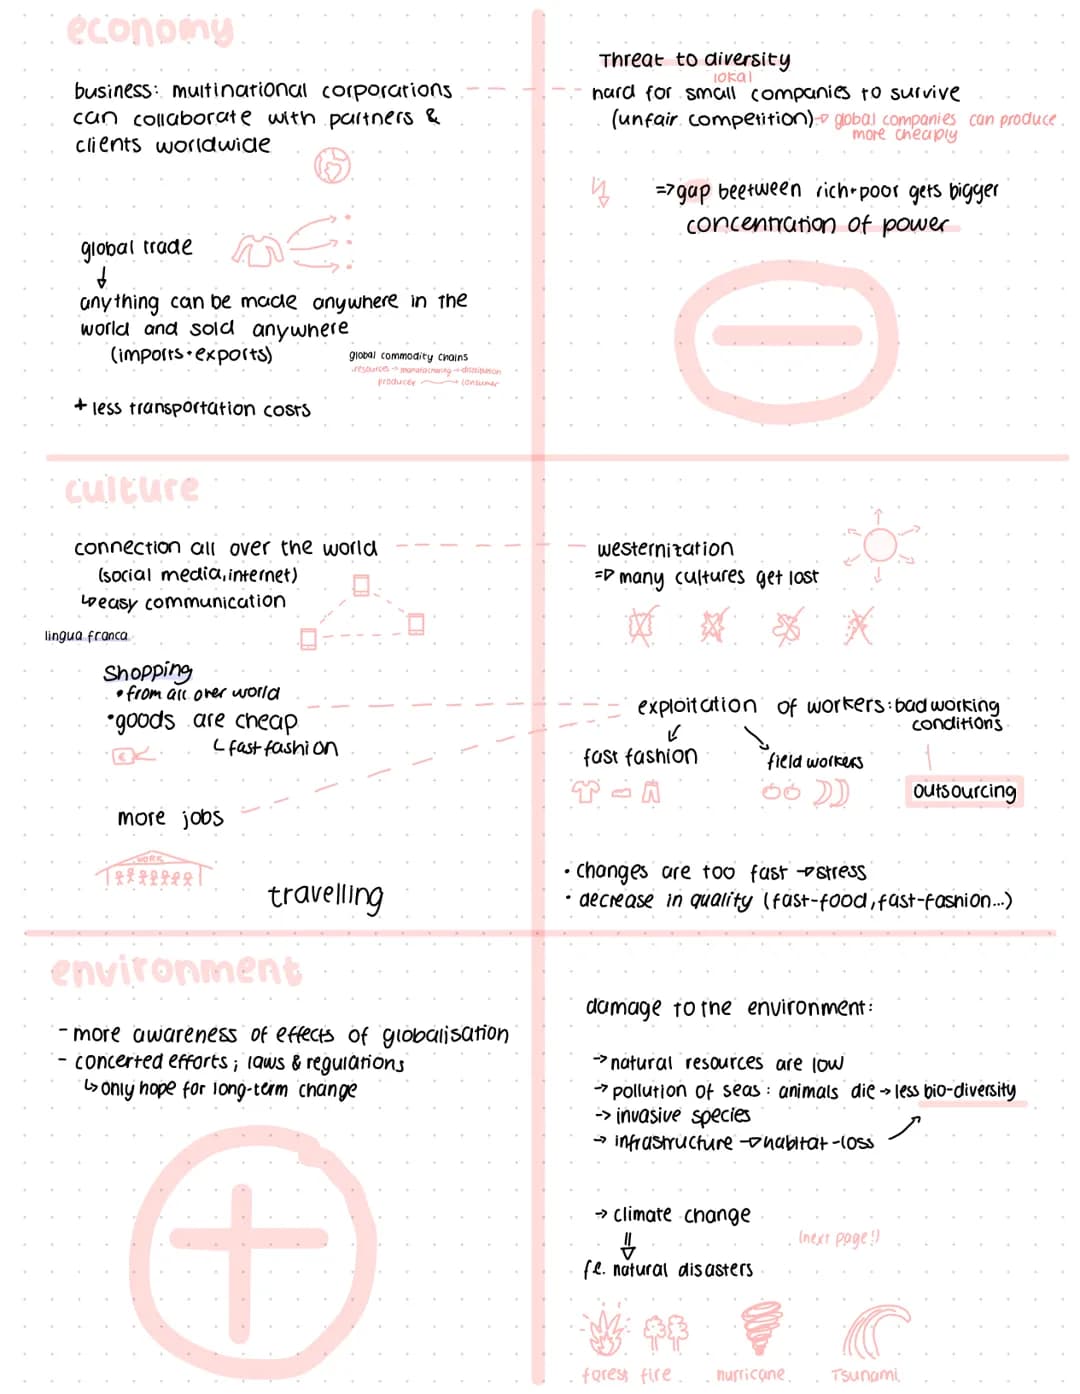 economy
business: multinational corporations
can collaborate with partners &
clients worldwide
global trade
↓
anything can be made anywhere in the
world and sold anywhere
(imports+exports)
global commodity chains
resources → manufacturing → distribution
producer → consumer
+ less transportation costs
Threat to diversity
lokal
hard for small companies to survive
(unfair competition) → global companies can produce
more cheaply
=> gap beetween rich+poor gets bigger
concentration of power
culture
connection all over the world
(social media, internet)
↳ easy communication
lingua franca
Shopping
• from all over world
• goods are cheap
↳ fast fashion
more jobs
WORK
travelling
westernization
=> many cultures get lost
exploitation of workers: bad working
conditions
fast fashion
field workers
outsourcing
• changes are too fast → stress
• decrease in quality (fast-food, fast-fashion...)
environment
- more awareness of effects of globalisation
- concerted efforts; laws & regulations
↳ only hope for long-term change
damage to the environment:
→ natural resources are low
→ pollution of seas: animals die → less bio-diversity
→ invasive species
→ infrastructure → habitat-loss
→ climate change
(next page!)
f.e. natural disasters
forest fire
hurricane
Tsunami